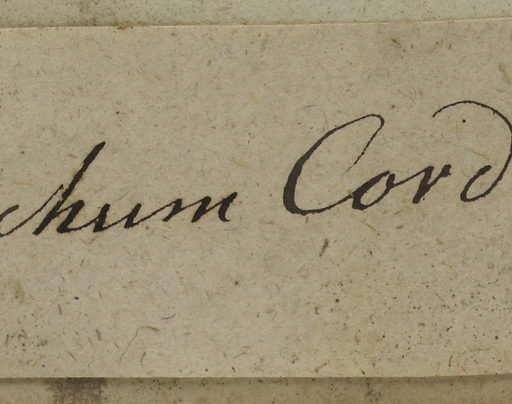 chum Cord